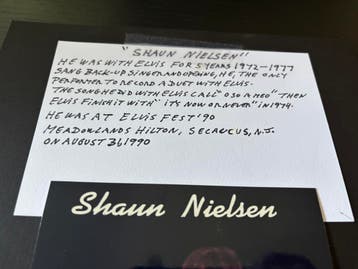 "SHAUN NIELSEN"
HE WAS WITH ELVIS FOR 5 YEARS 1972-1977
SANG BACK-UP SINGER AND OPENING, HE, THE ONLY
PERFORMER TO RECORD A DUET WITH ELVIS-
THE SONG HE DID WITH ELVIS CALL "O SO A MEO" THEN
ELVIS FINISH IT WITH "ITS NOW OR NEVER" IN 1974.
HE WAS AT ELVIS FEST '90
MEADOWLANDS HILTON, SECAUCUS, N.J.
ON AUGUST 31, 1990
Shaun Nielsen